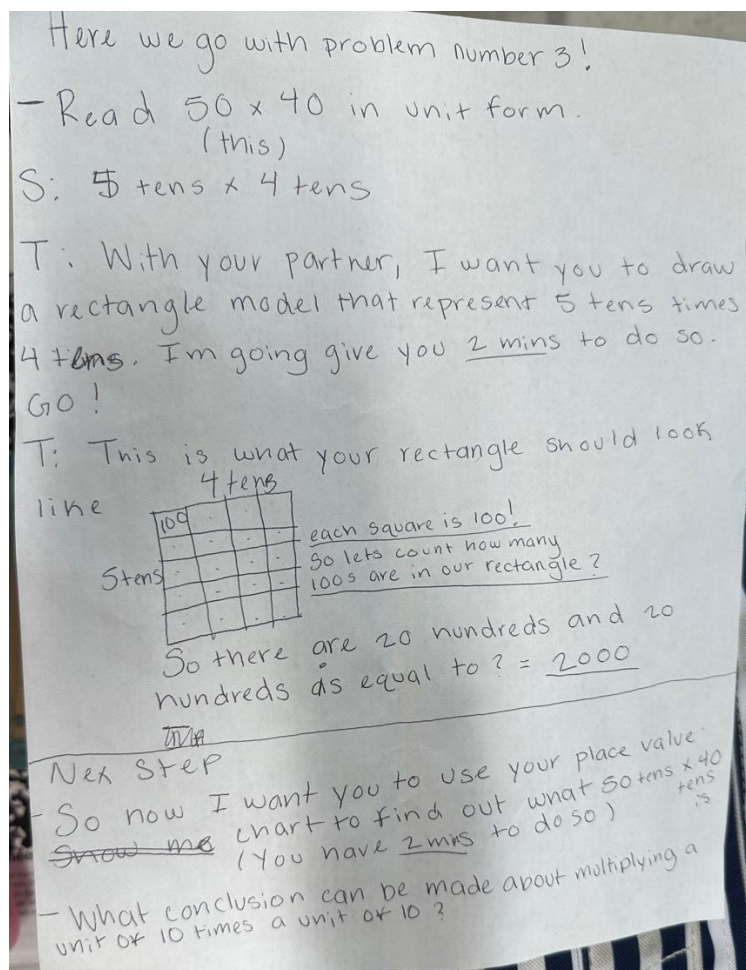 Here we go with problem number 3!
- Read 50 x 40 in unit form.
(this)
S: 5 tens x 4 tens
T: With your partner, I want you to draw
a rectangle model that represent 5 tens times
4 tens. Im going give you 2 mins to do so.
GO!
T: This is what your rectangle should look
like
4 tens
100
5tens
each square is 100!
So lets count how many
100s are in our rectangle?
So there are 20 hundreds and 20
hundreds is equal to? = 2000
Nex Step
- So now I want you to use your place value
Show me chart to find out what 50 tens x 40
tens
is
(You have 2 mins to do so)
- What conclusion can be made about multiplying a
unit of 10 times a unit of 10?